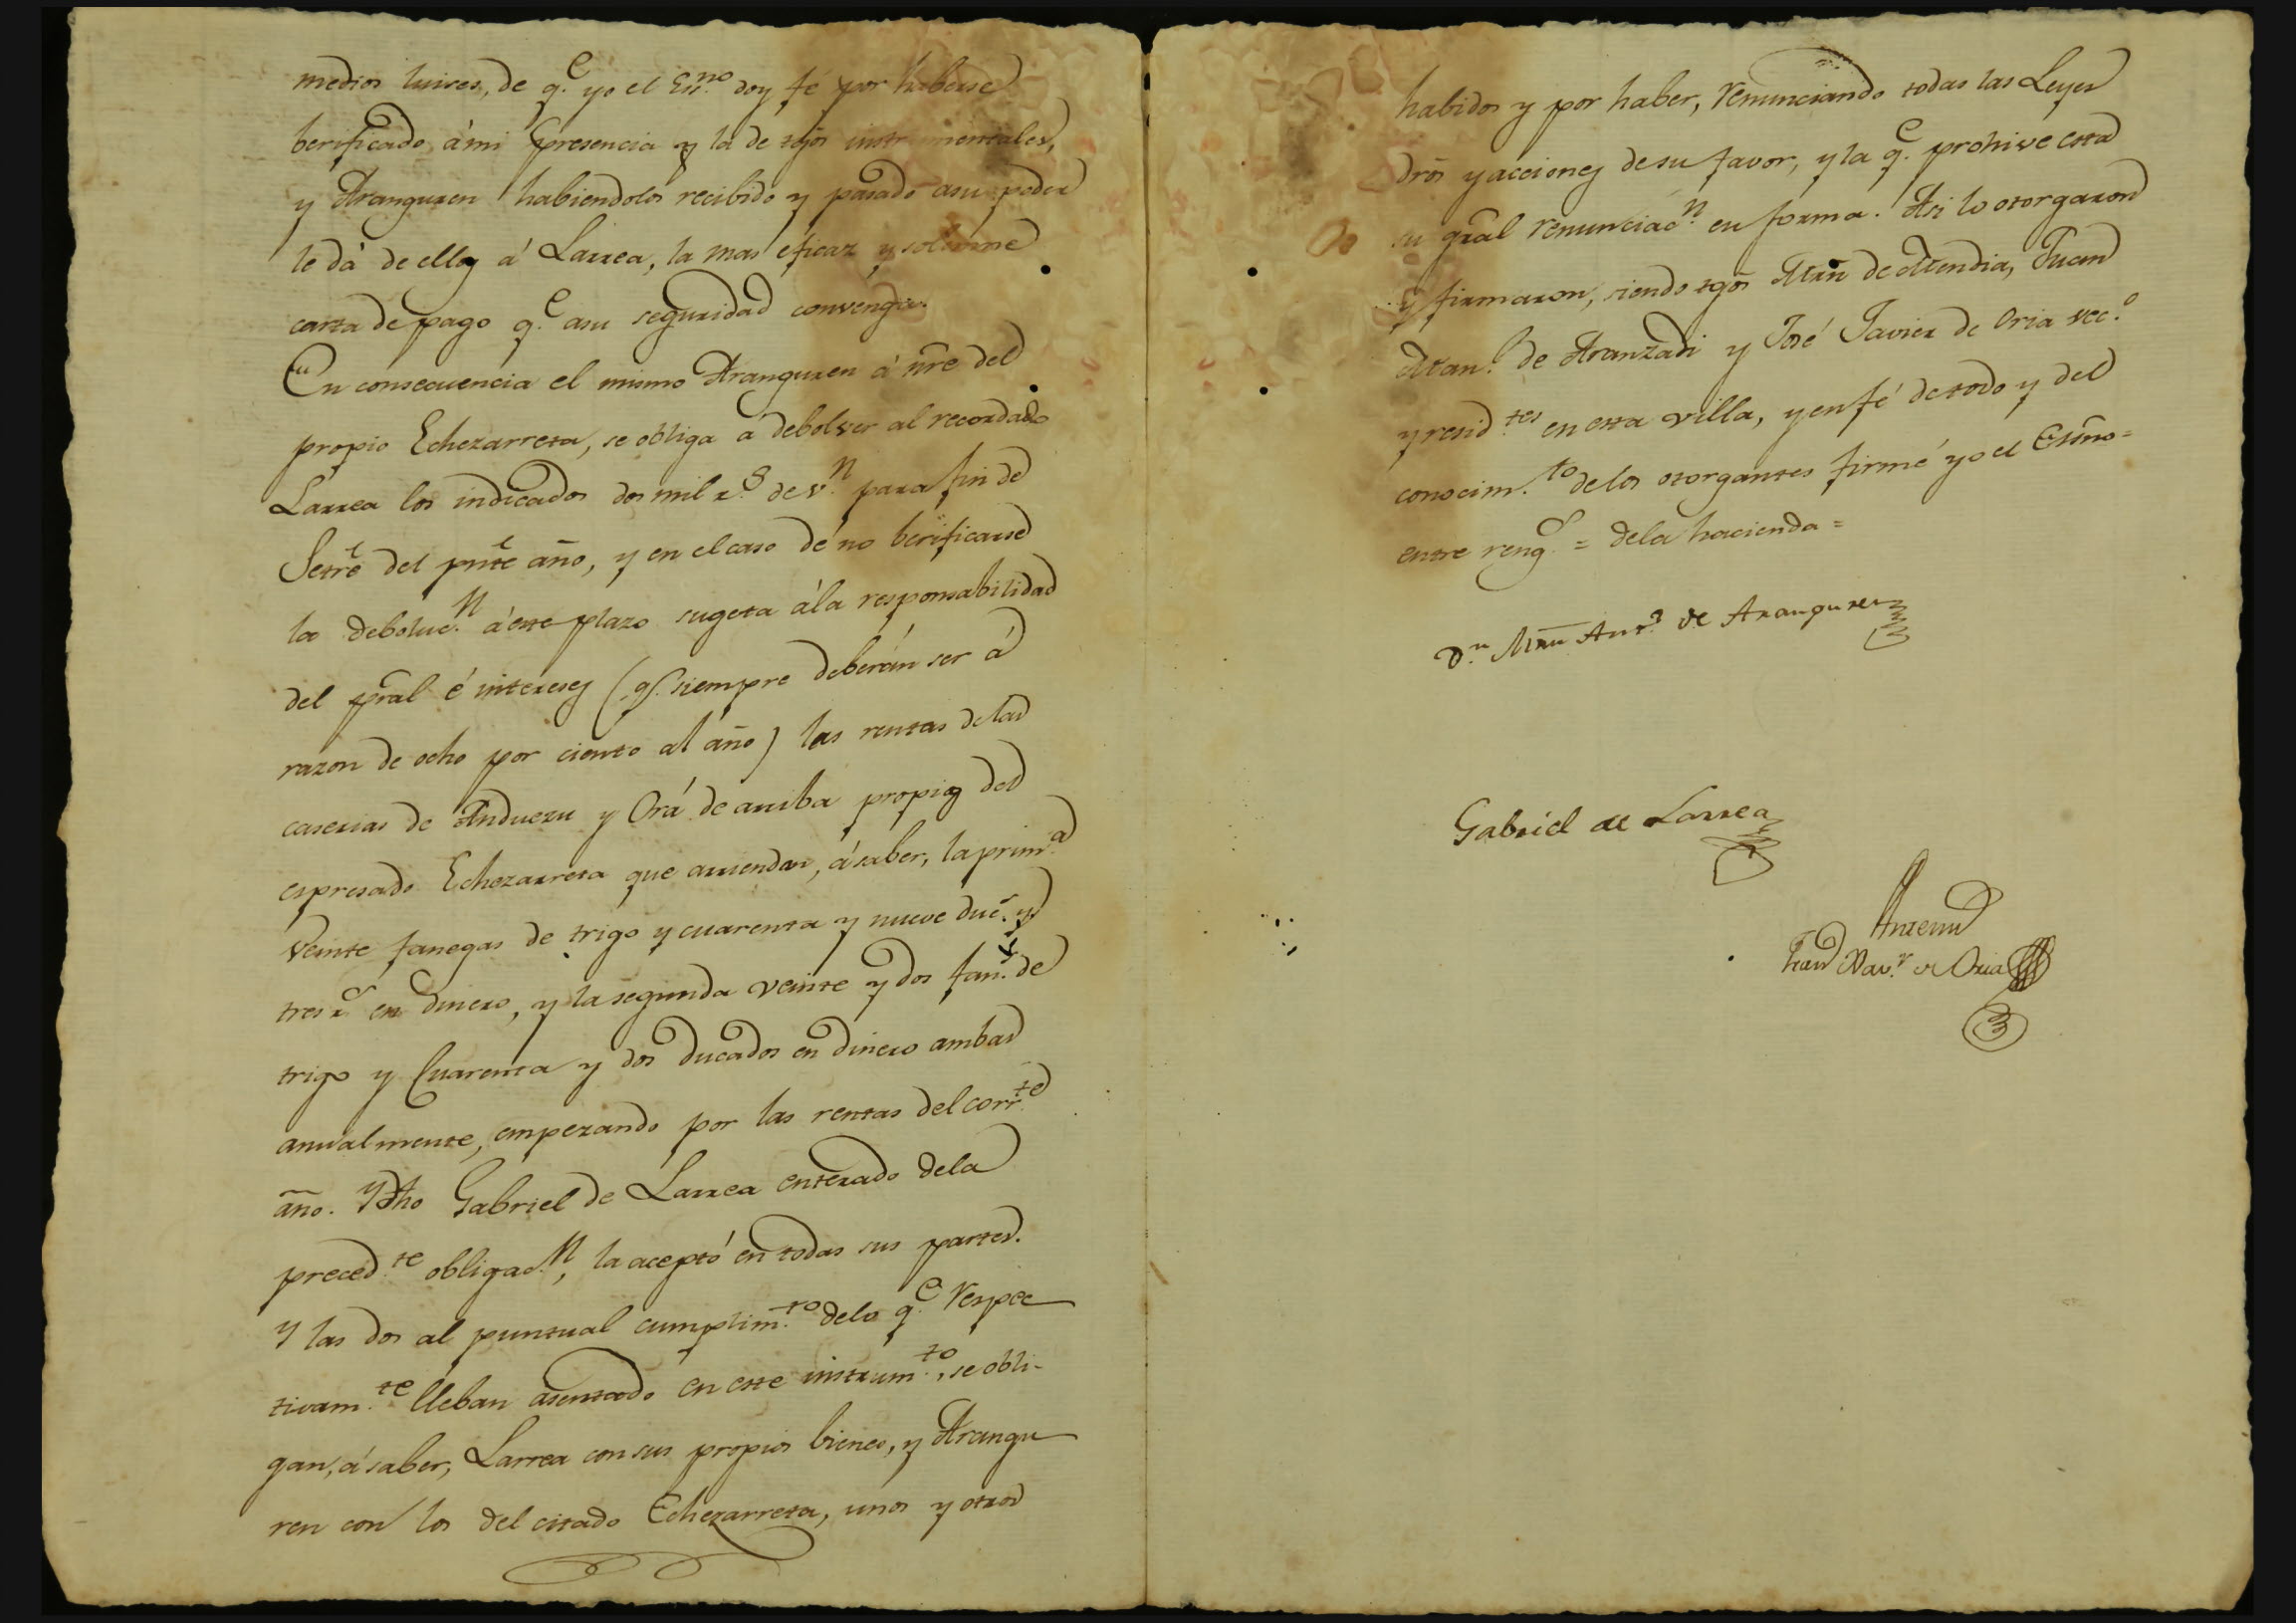 medios luises, de q.e yo el Esn.no doy fé por haberse
berificado á mi presencia y la de tgos instrumentales,
y Aranguren habiendolos recibido y pasado asu poder
le dá de ellos á Larrea, la mas eficaz y solemne
carta de pago q.e asu seguridad convenga.
En consecuencia el mismo Aranguren á nre del
propio Echezarreta, se obliga a debolver al recordado
Larrea los indicados dos mil r.s de v.n para fin de
Setre del pnte año, y en el caso de no berificarse
la deboluc.n á este plazo sugeta ála responsabilidad
del pral é intereses (q.e siempre deberán ser á
razon de ocho por ciento al año) las rentas delas
caserias de Andueza y Orá de arriba propias del
espresado Echezarreta que arriendan, ásaber, la prim.a
veinte fanegas de trigo y cuarenta y nueve duc.s y
tres r.s en dinero, y la segunda veinte y dos fan.s de
trigo y Cuarenta y dos ducados en dinero ambas
anualmente, empezando por las rentas del corr.te
año. Y dho Gabriel de Larrea enterado dela
preced.te obligac.n, la aceptó en todas sus partes.
Y las dos al puntual cumplim.to delo q.e respec
tivam.te lleban asentado en este instrum.to, se obli-
gan, á saber, Larrea con sus propios bienes, y Arangu
ren con los del citado Echezarreta, unos y otros
habidos y por haber, renunciando todas las Leyes
dros y acciones de su favor, y la q.e prohive esta
su gral renunciac.n en forma. Asi lo otorgaron
y firmaron, siendo tgos Mrn de Mendia, Juan
Man.l de Aranzadi y José Javier de Oria vec.o
y resid.tes en esta villa, y en fé de todo y del
conocim.to delos otorgantes firmé yo el Esno =
entre reng.s = dela hacienda =
D.n Mrn Ant.o de Aranguren
Gabriel de Larrea
Antemi
Fran Xav.r de Oria